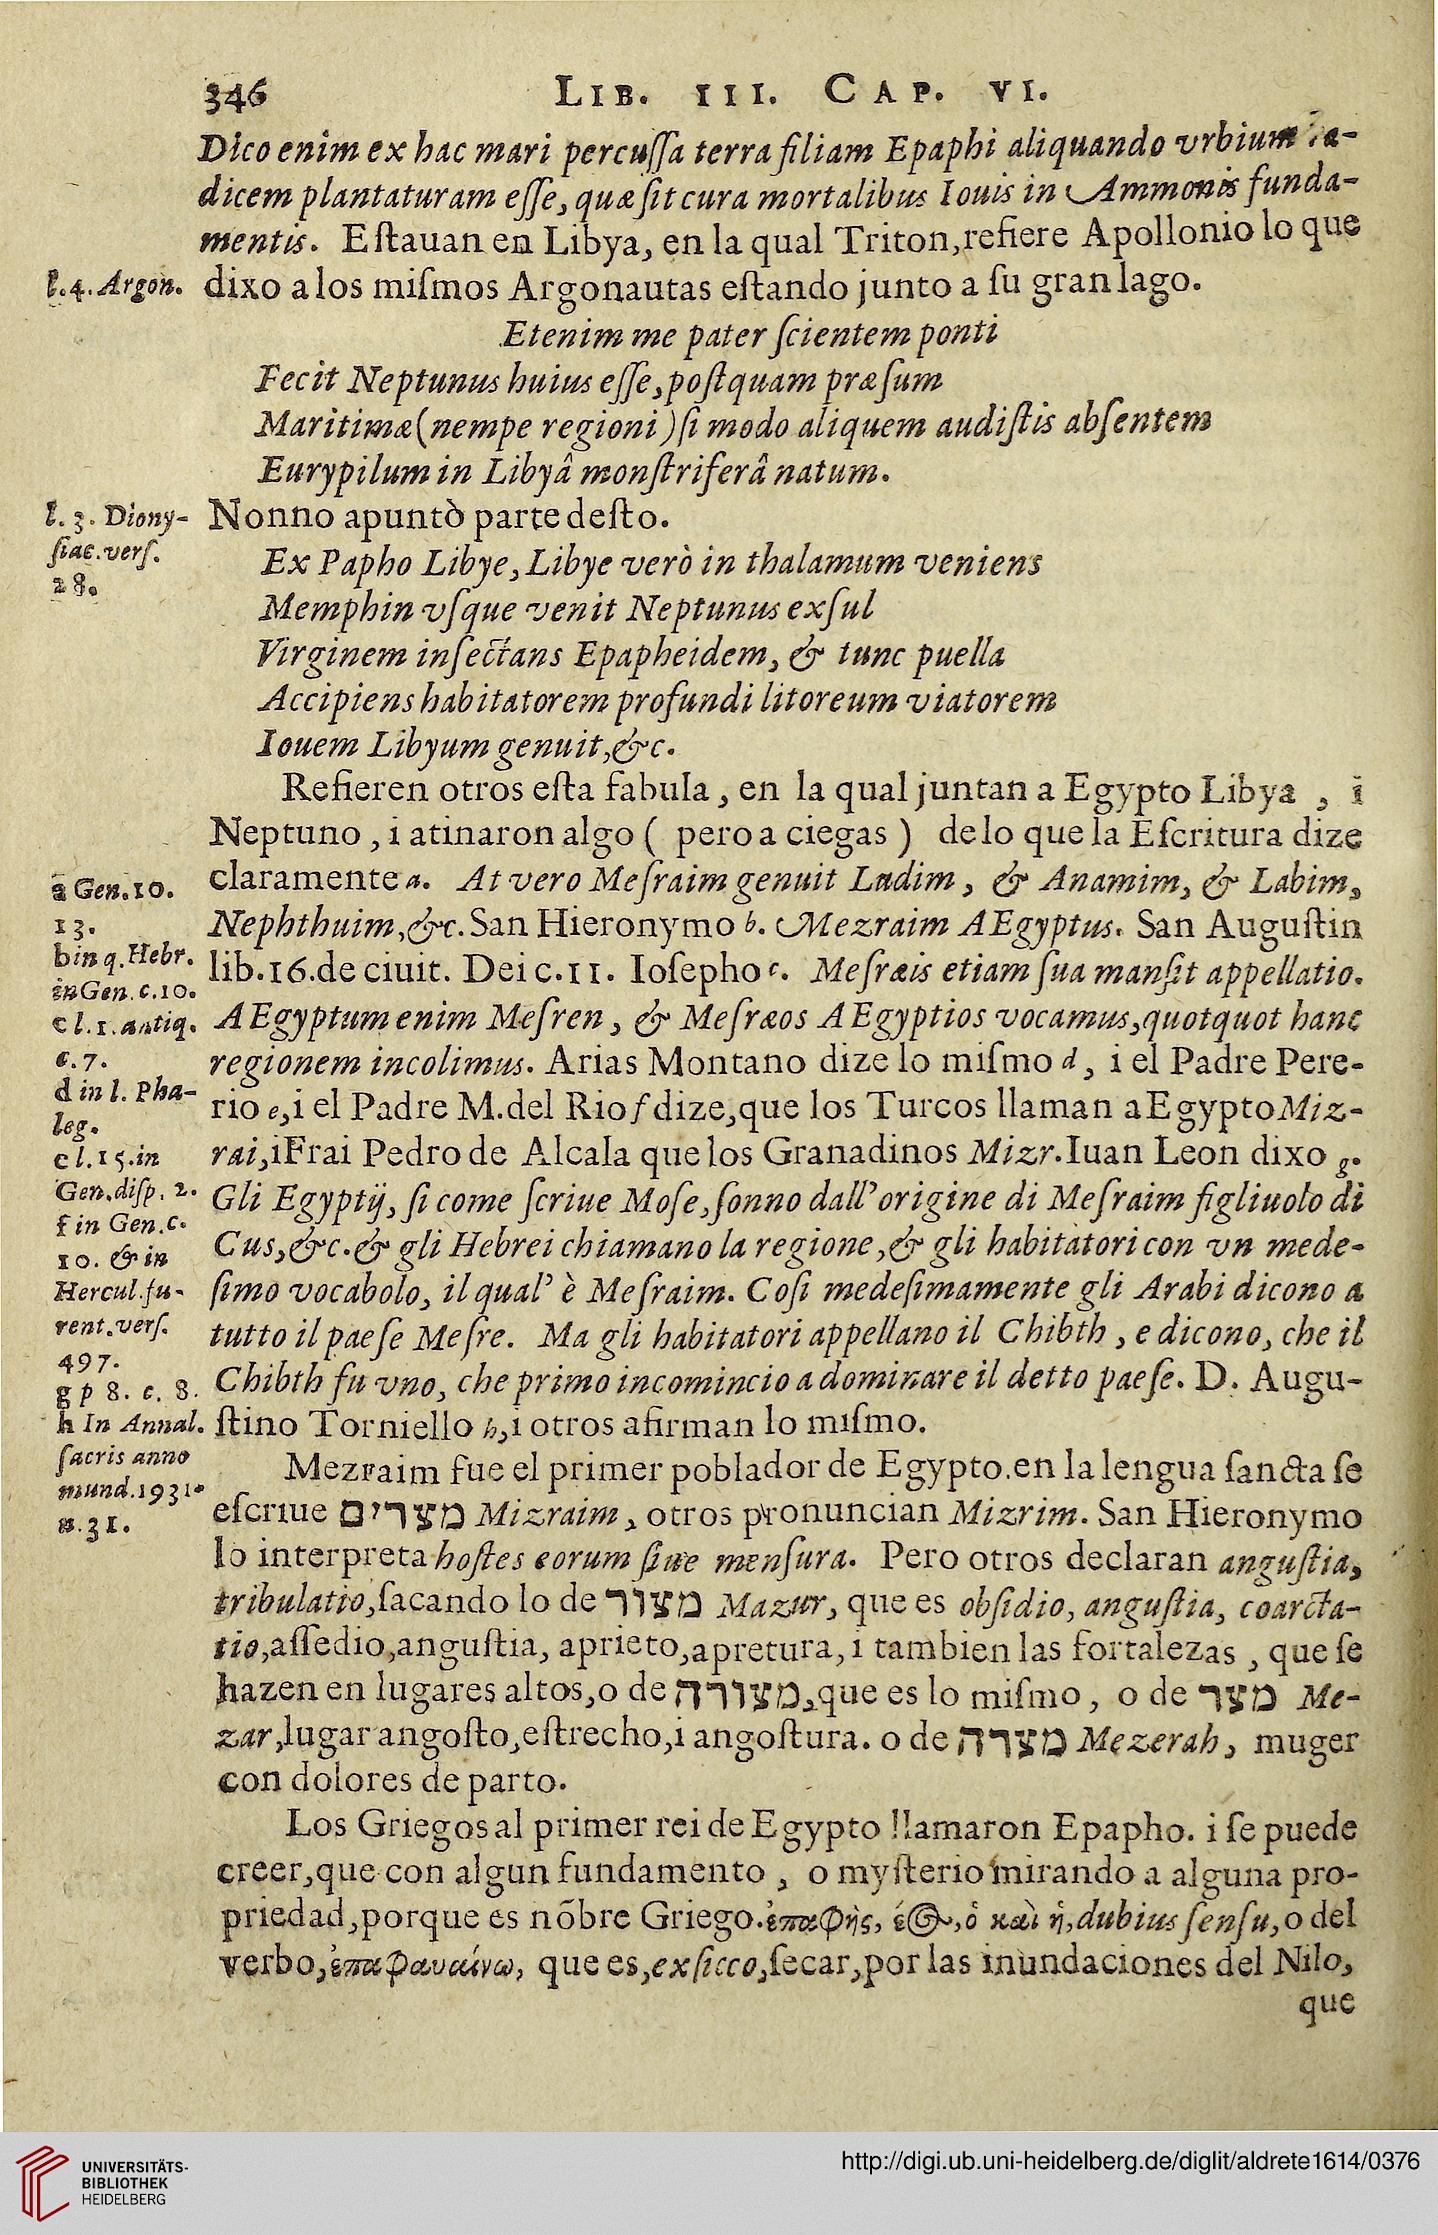 346 LIB. III. CAP. VI.
Dico enim ex hac mari percuſſa terra filiam Epaphi aliquando vrbium ra-
dicem plantaturam eſſe, quæ ſit cura mortalibus Iouis in Ammonis funda-
mentis. Eſtauan en Libya, en la qual Triton, refiere Apollonio lo que
l.4. Argon.
dixo a los miſmos Argonautas eſtando junto a ſu gran lago.
Etenim me pater ſcientem ponti
Fecit Neptunus huius eſſe, poſtquam præſum
Maritimæ (nempe regioni) ſi modo aliquem audiſtis abſentem
Eurypilum in Libyâ monſtriferâ natum.
l. 3. Diony-
ſiac. verſ.
28.
Nonno apuntò parte deſto.
Ex Papho Libye, Libye verò in thalamum veniens
Memphin vſque venit Neptunus exſul
Virginem inſectans Epapheidem, & tunc puella
Accipiens habitatorem profundi litoreum viatorem
Iouem Libyum genuit, &c.
Refieren otros eſta fabula, en la qual juntan a Egypto Libya , i
Neptuno , i atinaron algo ( pero a ciegas ) de lo que la Eſcritura dize
claramente a. At vero Meſraim genuit Ludim , & Anamim, & Labim,
Nephthuim, &c. San Hieronymo b. Mezraim AEgyptus. San Auguſtin
lib. 16. de ciuit. Dei c. 11. Ioſepho c. Meſræis etiam ſua manſit appellatio.
AEgyptum enim Meſren , & Meſræos AEgyptios vocamus, quotquot hanc
regionem incolimus. Arias Montano dize lo miſmo d , i el Padre Pere-
rio e, i el Padre M. del Rio f dize, que los Turcos llaman a Egypto Miz-
rai, i Frai Pedro de Alcala que los Granadinos Mizr. Iuan Leon dixo g.
Gli Egyptij, ſi come ſcriue Moſe, ſonno dall' origine di Meſraim figliuolo di
Cus, &c. & gli Hebrei chiamano la regione, & gli habitatori con vn mede-
ſimo vocabolo, il qual' è Meſraim. Coſi medeſimamente gli Arabi dicono a
tutto il paeſe Meſre. Ma gli habitatori appellano il Chibth , e dicono, che il
Chibth fu vno, che primo incomincio a dominare il detto paeſe. D. Augu-
ſtino Torniello h, i otros afirman lo miſmo.
a Gen. 10.
13.
b in q. Hebr.
in Gen. c. 10.
c l. 1. antiq.
c. 7.
d in l. Pha-
leg.
e l. 15. in
Gen. diſp. 2.
f in Gen. c.
10. & in
Hercul. fu-
rent. verſ.
497.
g p 8. c. 8.
h In Annal.
ſacris anno
mund. 1931.
n. 31.
Mezraim fue el primer poblador de Egypto. en la lengua ſancta ſe
eſcriue מצרים Mizraim , otros pronuncian Mizrim. San Hieronymo
lo interpreta hoſtes eorum ſiue menſura. Pero otros declaran anguſtia,
tribulatio, ſacando lo de מצור Mazur, que es obſidio, anguſtia, coarcta-
tio, aſſedio, anguſtia, aprieto, apretura, i tambien las fortalezas , que ſe
hazen en lugares altos, o de מצורה, que es lo miſmo , o de מצר Me-
zar, lugar angoſto, eſtrecho, i angoſtura. o de מצרה Mezerah , muger
con dolores de parto.
Los Griegos al primer rei de Egypto llamaron Epapho. i ſe puede
creer, que con algun fundamento , o myſterio mirando a alguna pro-
priedad, porque es nõbre Griego. ἐπαφὴς, έος, ὁ καὶ ἡ, dubius ſenſu, o del
verbo, ἐπαφαυαίνω, que es, exſicco, ſecar, por las inundaciones del Nilo,
que
UNIVERSITÄTS-
BIBLIOTHEK
HEIDELBERG
http://digi.ub.uni-heidelberg.de/diglit/aldrete1614/0376